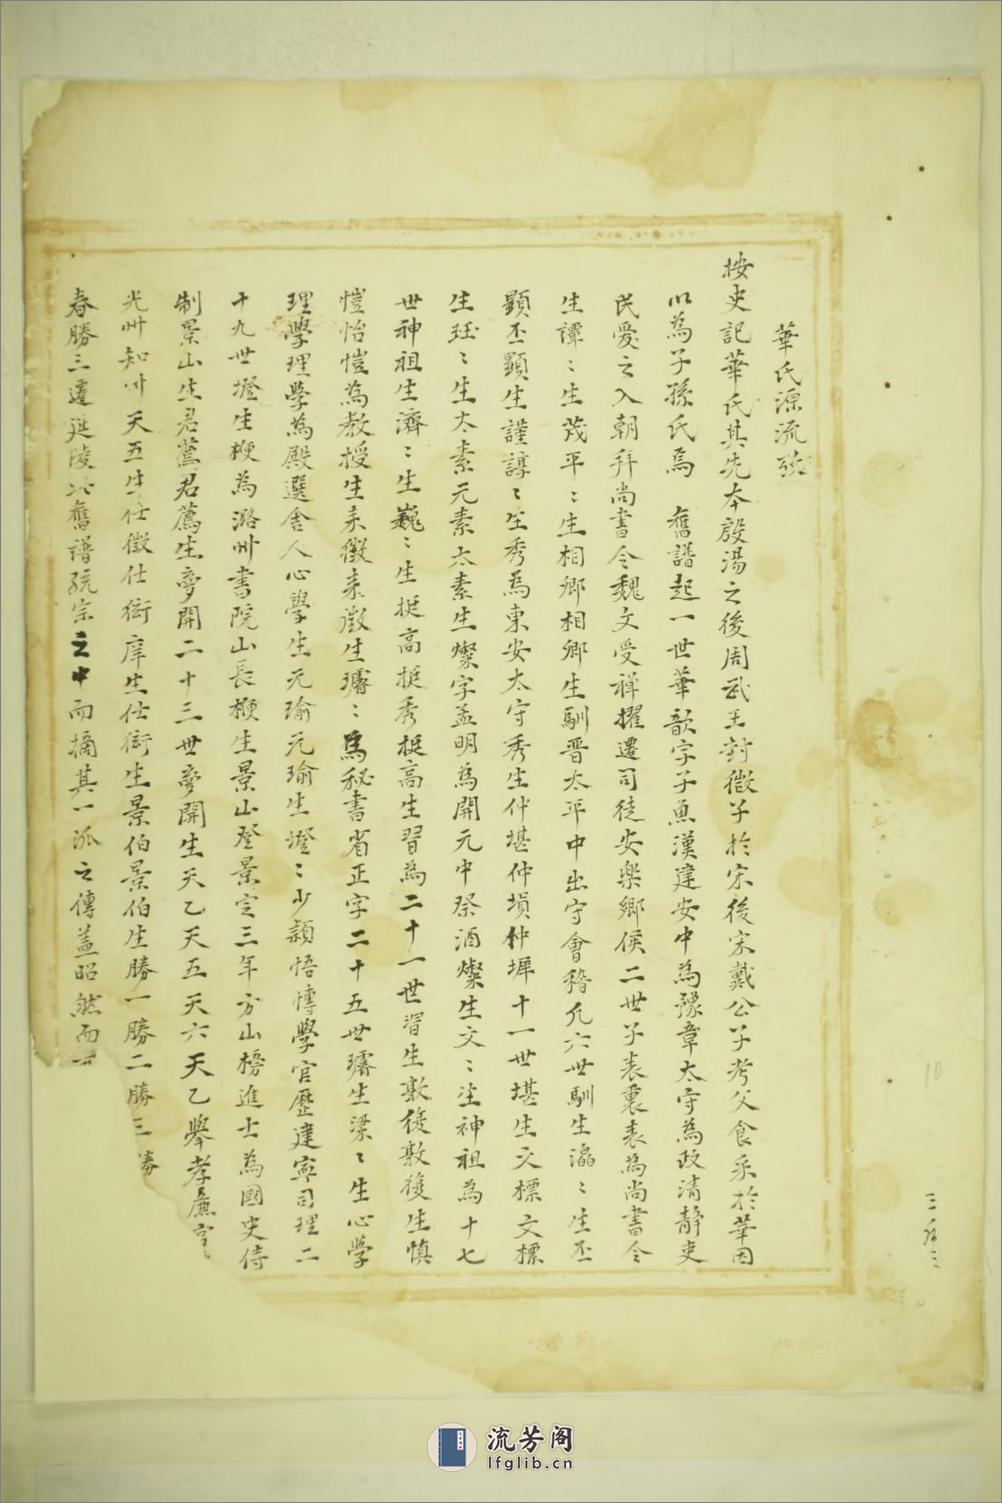 華氏源流
按史記華氏其先本殷湯之後周武王封微子於宋後宋戴公子考父食采於華因
以為子孫氏焉　舊譜起一世華歆字子魚漢建安中為豫章太守為政清靜吏
民愛之入朝拜尚書令魏文受禪擢遷司徒安樂鄉侯二世子表裏表為尚書令
生譚〻生茂平〻生相鄉相鄉生馴晋太平中出守會稽凡六世馴生瀛〻生丕
顯丕顯生謹諄〻生秀為東安太守秀生仲堪仲塤仲墀十一世堪生文標文標
生珏〻生太素元素太素生燦字孟明為開元中祭酒燦生文〻生神祖為十七
世神祖生濟〻生巍〻生挺高挺秀挺高生習為二十一世習生敦俊敦復生慎
愷怡愷為教授生来徵来徵生璿〻為秘書省正字二十五世璿生梁〻生心學
理學理學為殿選舍人心學生元瑜元瑜生墱〻少穎悟愽學官歷建寧司理二
十九世墱生楩為潞州書院山長楩生景山登景定三年方山榜進士為國史侍
制景山生君薦君薦生夢開二十三世夢開生天乙天五天六天乙舉孝廉官
光州知州天五生仕徵仕衙庠生仕衙生景伯景伯生勝一勝二勝三勝
春勝三遷延陵此舊譜統宗之中而摘其一派之傳蓋昭然而
10
流芳阁
lfglib.cn